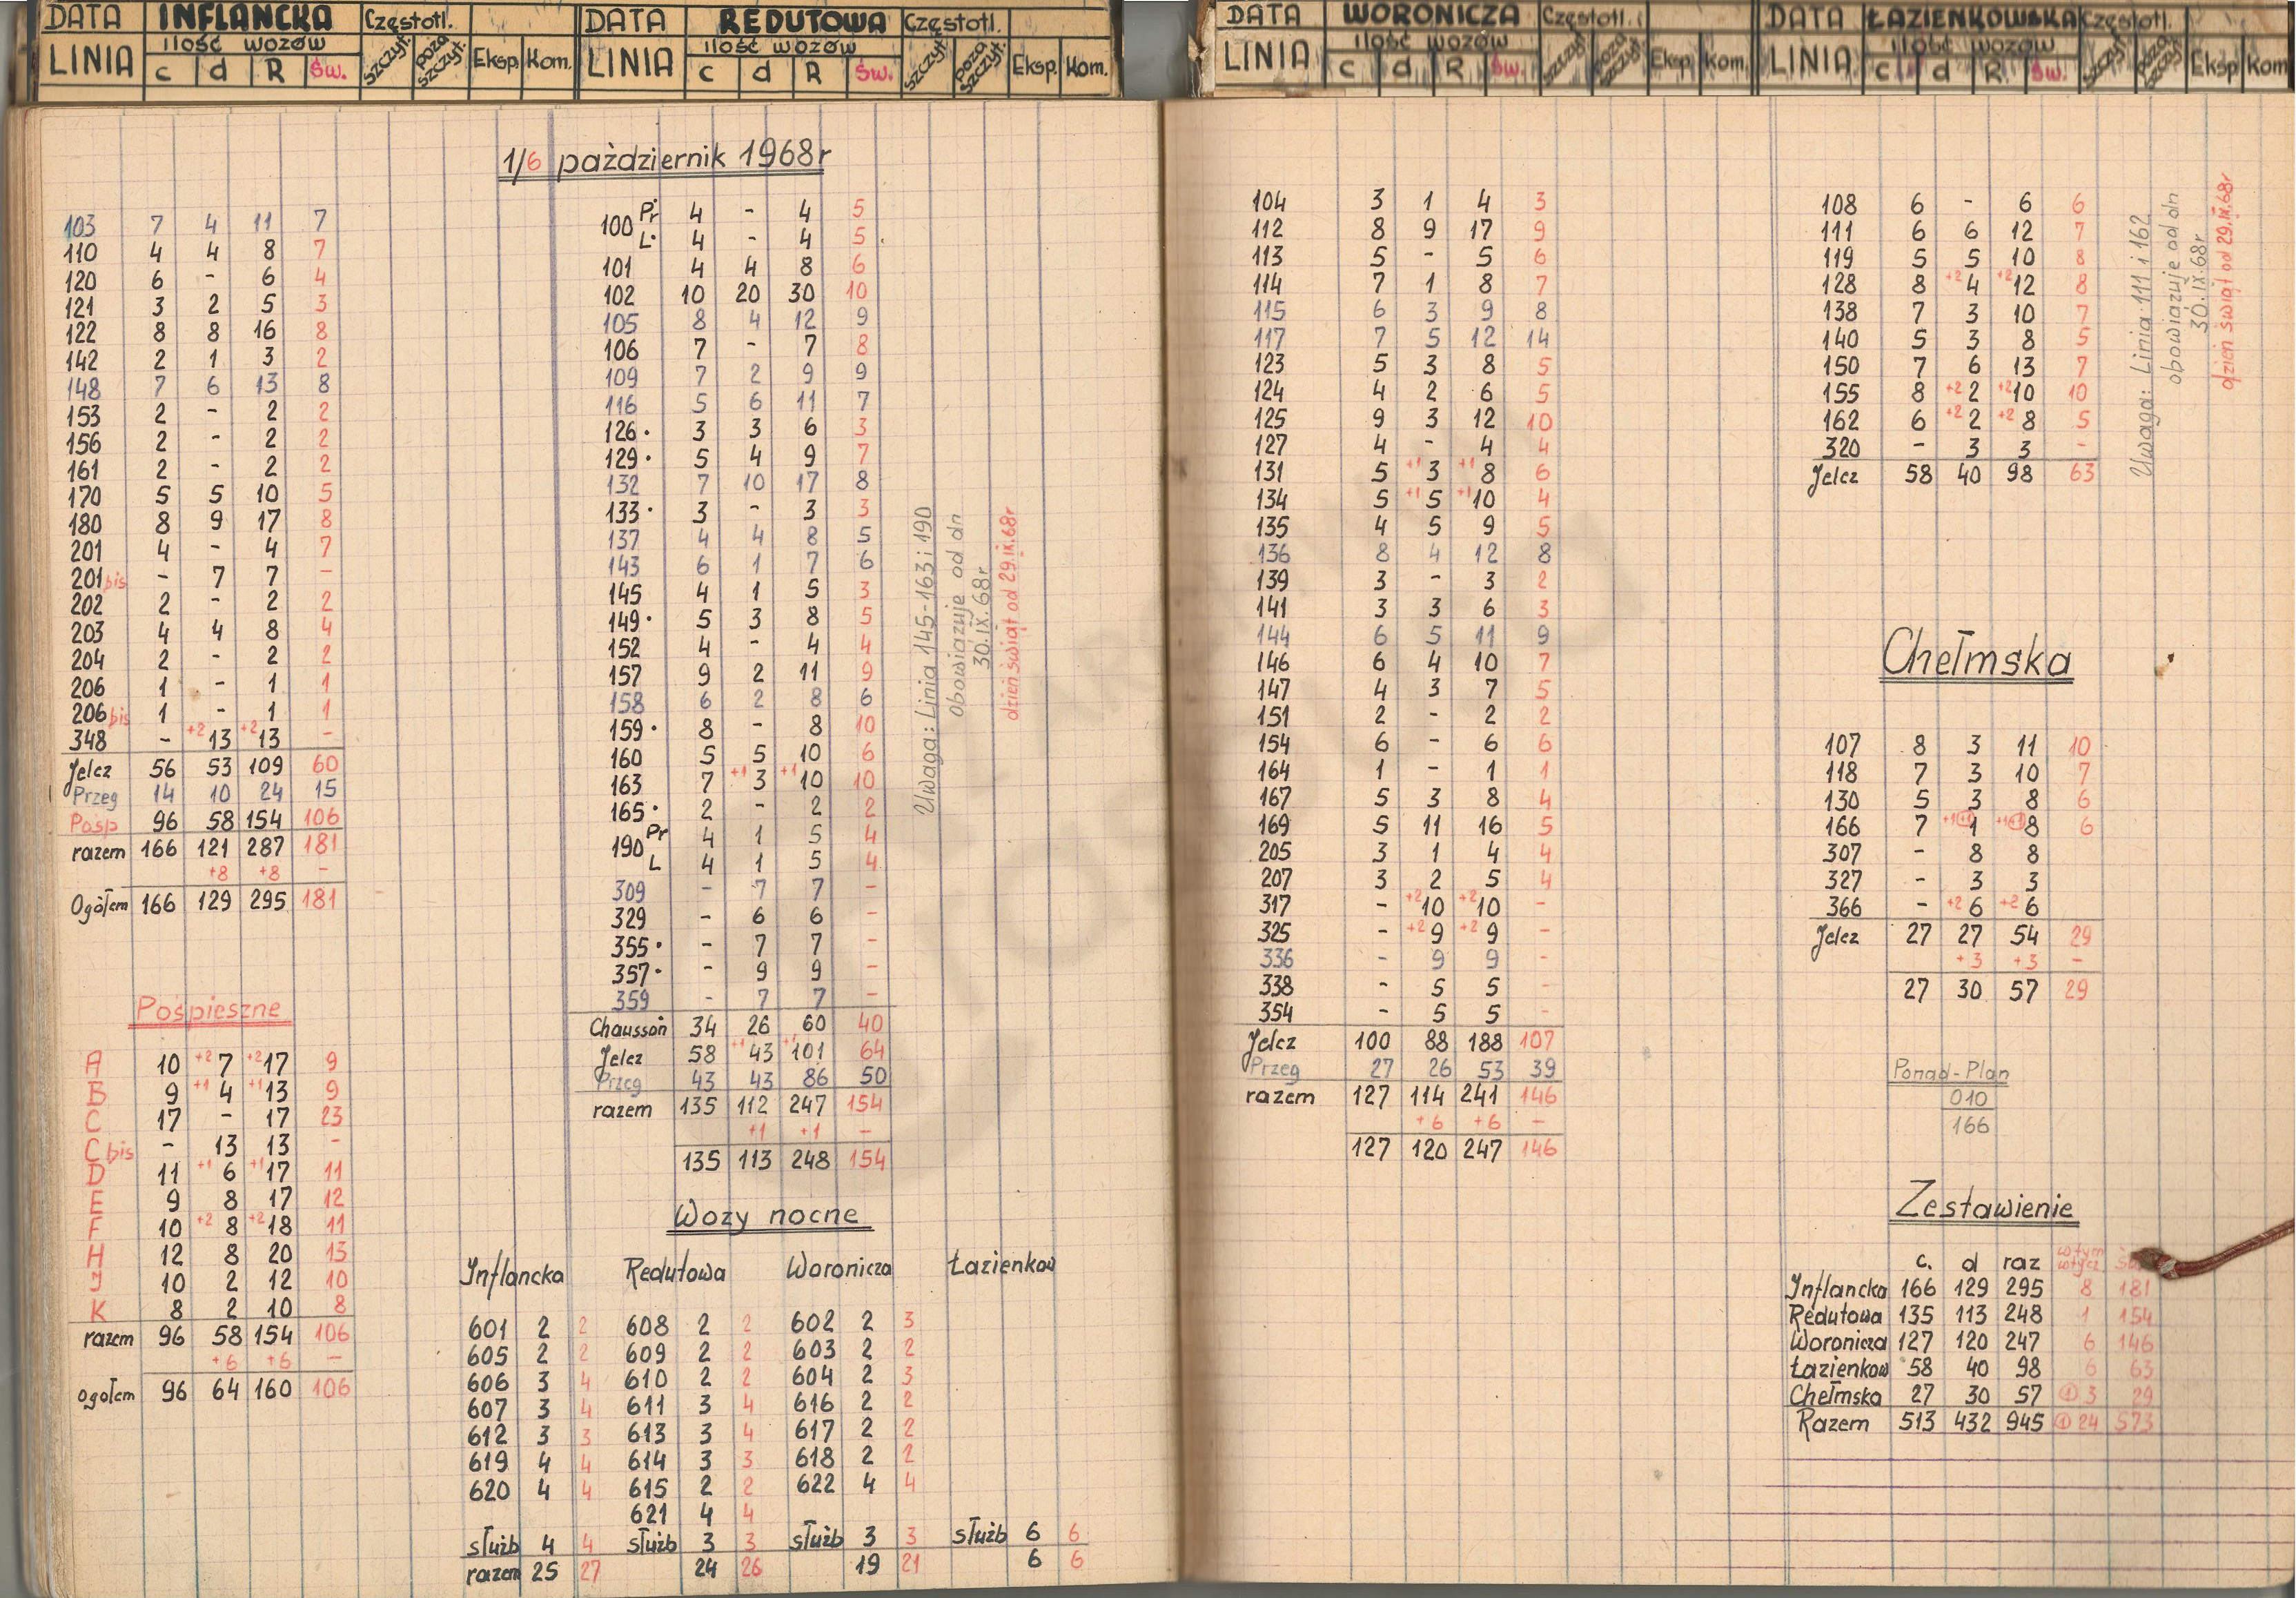 DATA INFLANCKA Częstotl.
LINIA ilość wozów szczyt. poza szczyt. Eksp. Kom.
c d R św.
DATA REDUTOWA Częstotl.
LINIA ilość wozów szczyt. poza szczyt. Eksp. Kom.
c d R św.
DATA WORONICZA Częstotl.
LINIA ilość wozów szczyt. poza szczyt. Eksp. Kom.
c d R św.
DATA ŁAZIENKOWSKA Częstotl.
LINIA ilość wozów szczyt. poza szczyt. Eksp Kom
c d R św.
1/6 październik 1968r
103 7 4 11 7
110 4 4 8 7
120 6 - 6 4
121 3 2 5 3
122 8 8 16 8
142 2 1 3 2
148 7 6 13 8
153 2 - 2 2
156 2 - 2 2
161 2 - 2 2
170 5 5 10 5
180 8 9 17 8
201 4 - 4 7
201 bis - 7 7 -
202 2 - 2 2
203 4 4 8 4
204 2 - 2 2
206 1 - 1 1
206 bis 1 - 1 1
348 - +2 13 +2 13 -
Jelcz 56 53 109 60
Przeg 14 10 24 15
Pośp 96 58 154 106
razem 166 121 287 181
+8 +8 -
Ogółem 166 129 295 181
Pośpieszne
A 10 +2 7 +2 17 9
B 9 +1 4 +1 13 9
C 17 - 17 23
C bis - 13 13 -
D 11 +1 6 +1 17 11
E 9 8 17 12
F 10 +2 8 +2 18 11
H 12 8 20 13
J 10 2 12 10
K 8 2 10 8
razem 96 58 154 106
+6 +6 -
ogołem 96 64 160 106
100 Pr 4 - 4 5
L 4 - 4 5
101 4 4 8 6
102 10 20 30 10
105 8 4 12 9
106 7 - 7 8
109 7 2 9 9
116 5 6 11 7
126 • 3 3 6 3
129 • 5 4 9 7
132 7 10 17 8
133 • 3 - 3 3
137 4 4 8 5
143 6 1 7 6
145 4 1 5 3
149 • 5 3 8 5
152 4 - 4 4
157 9 2 11 9
158 6 2 8 6
159 • 8 - 8 10
160 5 5 10 6
163 7 +1 3 +1 10 10
165 • 2 - 2 2
190 Pr 4 1 5 4
L 4 1 5 4
309 - 7 7 -
329 - 6 6 -
355 • - 7 7 -
357 • - 9 9 -
359 - 7 7 -
Chausson 34 26 60 40
Jelcz 58 +1 43 +1 101 64
Przeg 43 43 86 50
razem 135 112 247 154
+1 +1 -
135 113 248 154
Uwaga: Linia 145-163 i 190
Obowiązuje od dn
30.IX.68r
dzień świąt od 29.IX.68r
Wozy nocne
Inflancka Redutowa Woronicza Łazienkow
601 2 2 608 2 2 602 2 3
605 2 2 609 2 2 603 2 2
606 3 4 610 2 2 604 2 3
607 3 4 611 3 4 616 2 2
612 3 3 613 3 4 617 2 2
619 4 4 614 3 3 618 2 2
620 4 4 615 2 2 622 4 4
621 4 4
służb 4 4 służb 3 3 służb 3 3 służb 6 6
razem 25 27 24 26 19 21 6 6
104 3 1 4 3
112 8 9 17 9
113 5 - 5 6
114 7 1 8 7
115 6 3 9 8
117 7 5 12 14
123 5 3 8 5
124 4 2 6 5
125 9 3 12 10
127 4 - 4 4
131 5 +1 3 +1 8 6
134 5 +1 5 +1 10 4
135 4 5 9 5
136 8 4 12 8
139 3 - 3 2
141 3 3 6 3
144 6 5 11 9
146 6 4 10 7
147 4 3 7 5
151 2 - 2 2
154 6 - 6 6
164 1 - 1 1
167 5 3 8 4
169 5 11 16 5
205 3 1 4 4
207 3 2 5 4
317 - +2 10 +2 10 -
325 - +2 9 +2 9 -
336 - 9 9 -
338 - 5 5 -
354 - 5 5 -
Jelcz 100 88 188 107
Przeg 27 26 53 39
razem 127 114 241 146
+6 +6 -
127 120 247 146
108 6 - 6 6
111 6 6 12 7
119 5 5 10 8
128 8 +2 4 +2 12 8
138 7 3 10 7
140 5 3 8 5
150 7 6 13 7
155 8 +2 2 +2 10 10
162 6 +2 2 +2 8 5
320 - 3 3 -
Jelcz 58 40 98 63
Uwaga: Linia 111 i 162
obowiązuje od dn
30.IX.68r
dzień świąt od 29.IX.68r
Chełmska
107 8 3 11 10
118 7 3 10 7
130 5 3 8 6
166 7 +1 (+1) 1 +1 (+1) 8 6
307 - 8 8
327 - 3 3
366 - +2 6 +2 6
Jelcz 27 27 54 29
+3 +3 -
27 30 57 29
Ponad-Plan
010
166
Zestawienie
c. d raz w tym wtycz.
Inflancka 166 129 295 8 181
Redutowa 135 113 248 1 154
Woronicza 127 120 247 6 146
Łazienkow 58 40 98 6 63
Chełmska 27 30 57 (1) 3 29
Razem 513 432 945 (1) 24 573